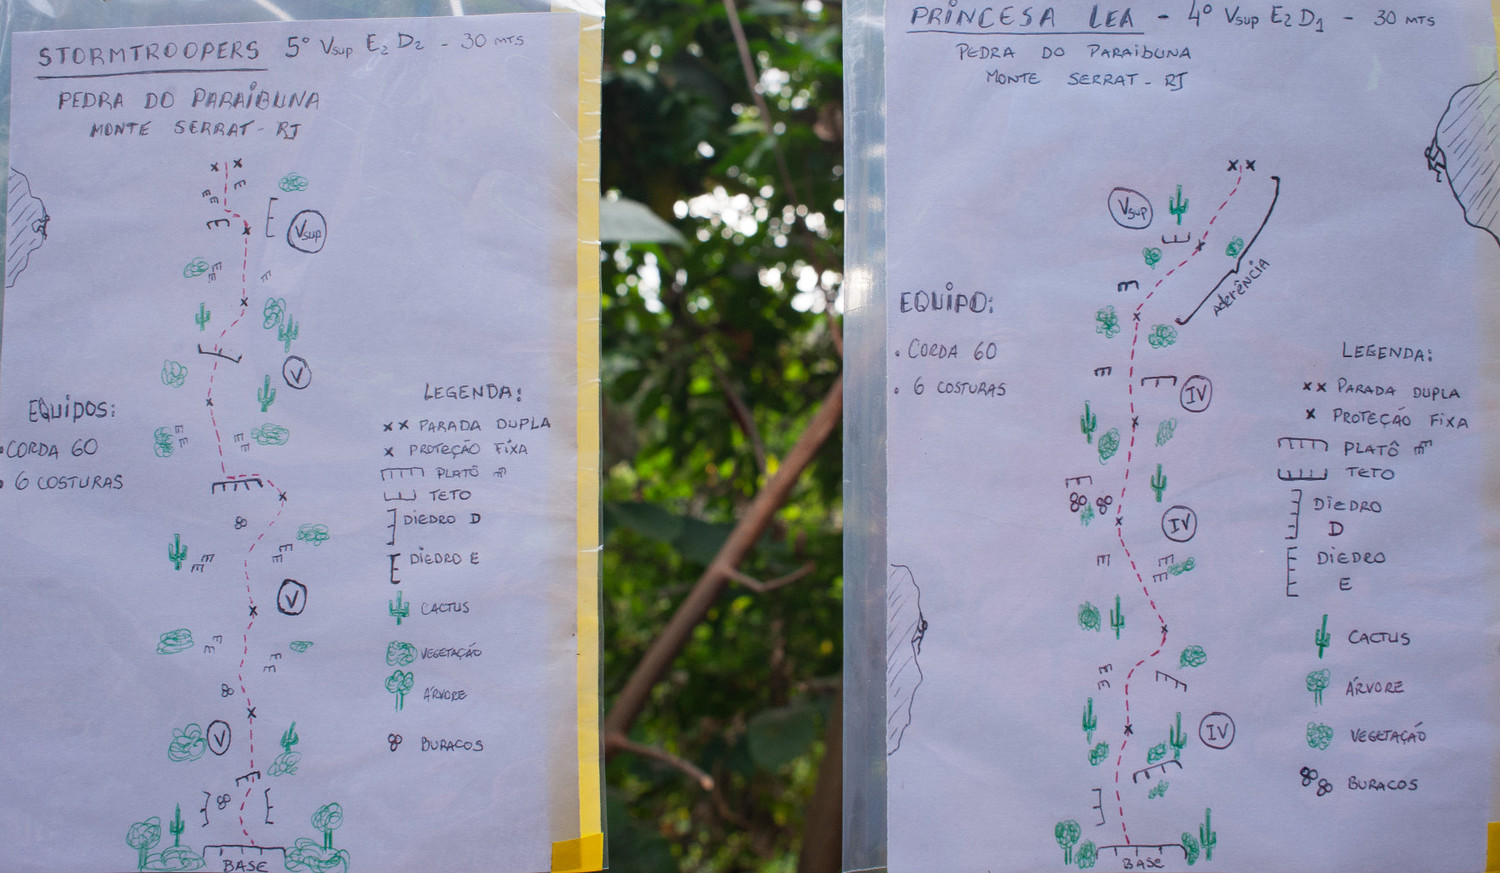 STORMTROOPERS 5° Vsup E2 D2 - 30 MTS
PEDRA DO PARAIBUNA
MONTE SERRAT - RJ
Vsup
V
EQUIPOS:
• CORDA 60
• 6 COSTURAS
LEGENDA:
x x PARADA DUPLA
x PROTEÇÃO FIXA
PLATÔ
TETO
DIEDRO D
DIEDRO E
CACTUS
VEGETAÇÃO
ÁRVORE
BURACOS
V
V
BASE
PRINCESA LEA - 4° Vsup E2 D1 - 30 MTS
PEDRA DO PARAIBUNA
MONTE SERRAT - RJ
Vsup
ADERÊNCIA
EQUIPO:
• CORDA 60
• 6 COSTURAS
IV
IV
IV
LEGENDA:
x x PARADA DUPLA
x PROTEÇÃO FIXA
PLATÔ
TETO
DIEDRO
D
DIEDRO
E
CACTUS
ÁRVORE
VEGETAÇÃO
BURACOS
BASE